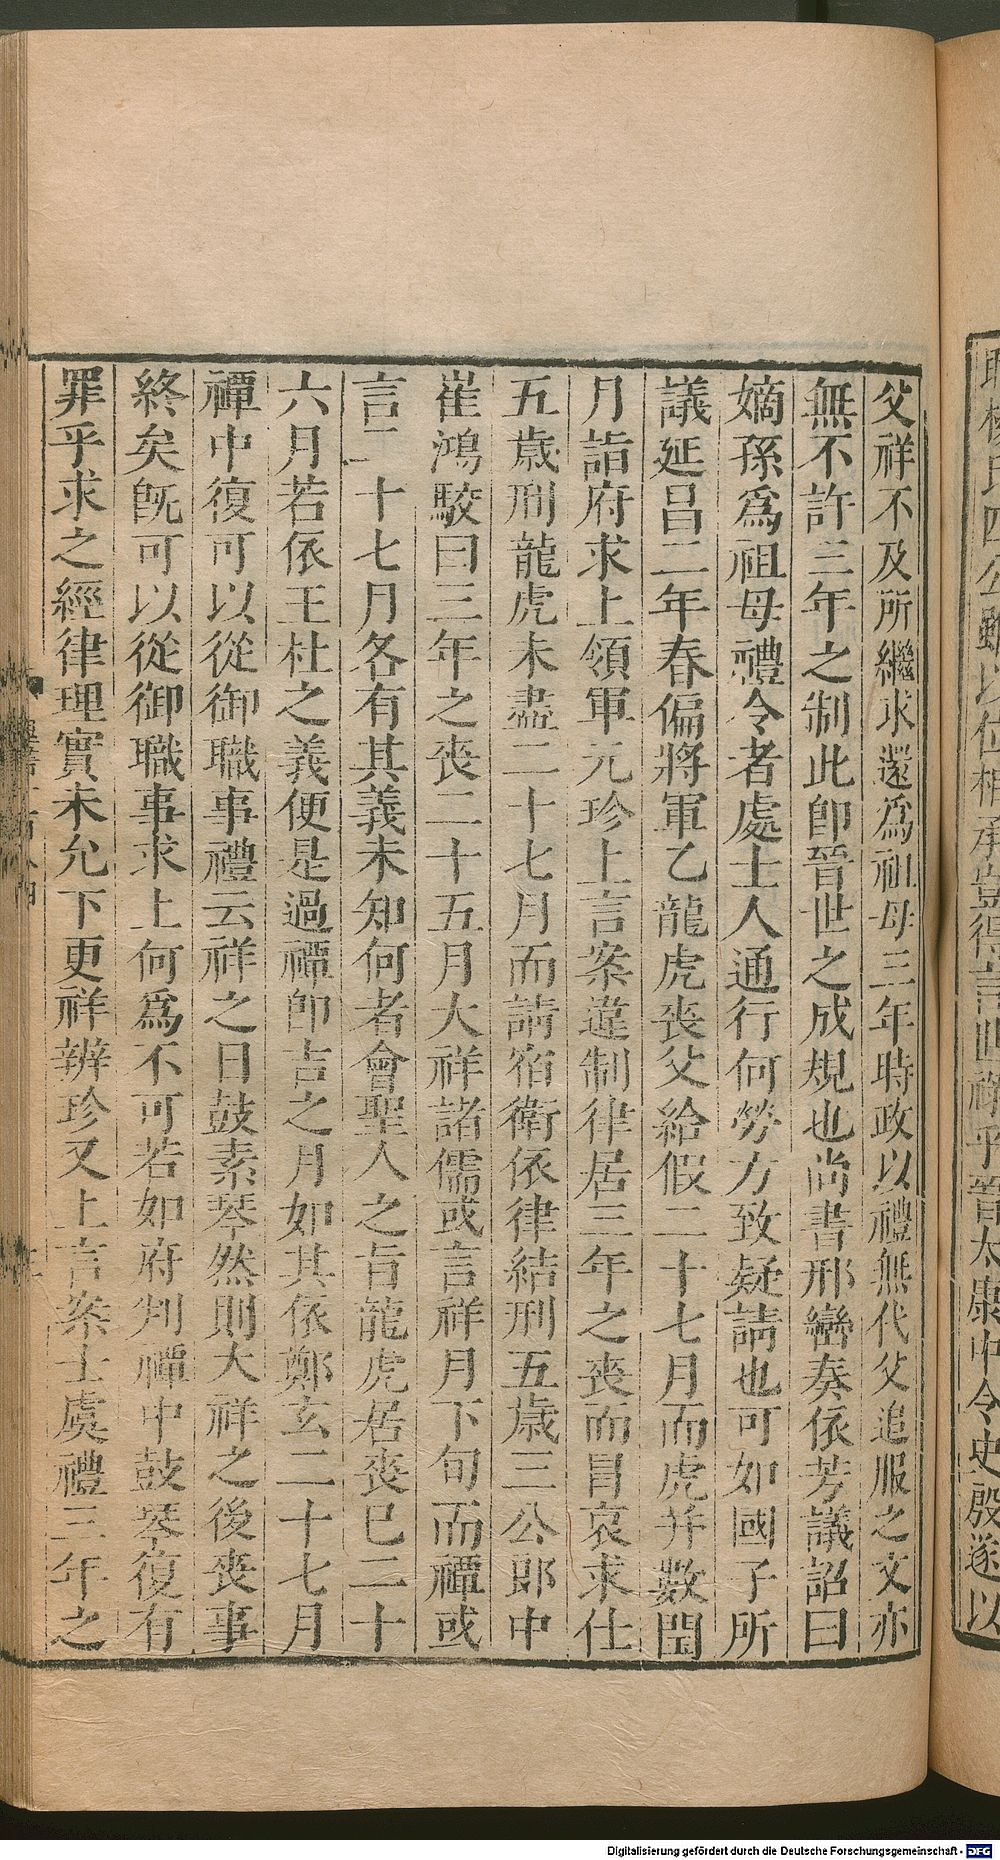 父祥不及所繼求還爲祖母三年時政以禮無代父追服之文亦
無不許三年之制此卽晉世之成規也尚書邢巒奏依芳議詔曰
嫡孫爲祖母禮令者處士人通行何勞方致疑請也可如國子所
議延昌二年春偏將軍乙龍虎喪父給假二十七月而虎并數閏
月詣府求上領軍元珍上言案違制律居三年之喪而冒哀求仕
五歲刑龍虎未盡二十七月而請宿衛依律結刑五歲三公郎中
崔鴻駮曰三年之喪二十五月大祥諸儒或言祥月下旬而禫或
言二十七月各有其義未知何者會聖人之旨龍虎居喪已二十
六月若依王杜之義便是過禫卽吉之月如其依鄭玄二十七月
禫中復可以從御職事禮云祥之日鼓素琴然則大祥之後喪事
終矣旣可以從御職事求上何爲不可若如府判禫中鼓琴復有
罪乎求之經律理實未允下更祥辨珍又上言案士虞禮三年之
公雖以位相承豈得言世祿乎晉太康中令史殷遂以
Digitalisierung gefördert durch die Deutsche Forschungsgemeinschaft - DFG